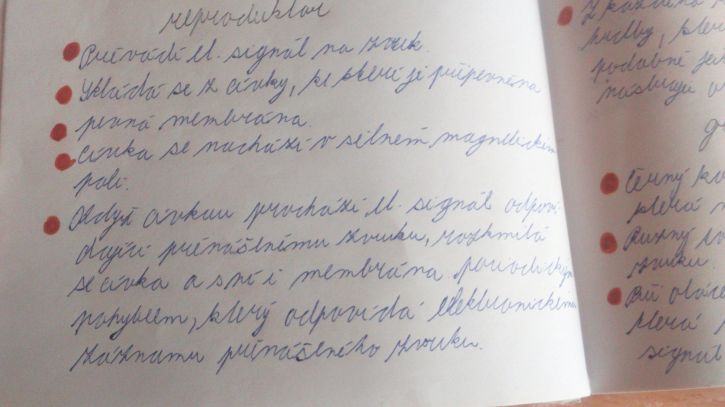 reproduktor
Převádí el. signál na zvuk.
Skládá se z cívky, ke které je připevněna
pevná membrána.
Cívka se nachází v silném magnetickém
poli.
Když cívkou prochází el. signál odpoví-
dající přenášenému zvuku, rozkmitá
se cívka a s ní i membrána periodickým
pohybem, který odpovídá elektronickému
záznamu přenášeného zvuku.
hudby, kter
podobně ja
Černý ko
která
zvuku
která
signál